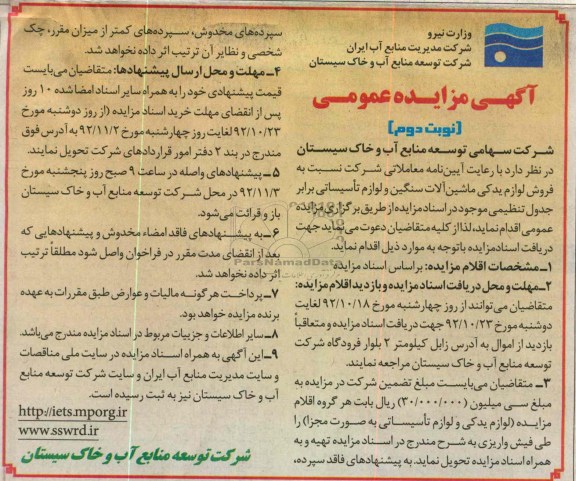 وزارت نیرو
شرکت مدیریت منابع آب ایران
شرکت توسعه منابع آب و خاک سیستان
آگهی مزایده عمومی
(نوبت دوم)
شرکت سهامی توسعه منابع آب و خاک سیستان
در نظر دارد با رعایت آیین‌نامه معاملاتی شرکت نسبت به
فروش لوازم یدکی ماشین‌آلات سنگین و لوازم تأسیساتی برابر
جدول تنظیمی موجود در اسناد مزایده از طریق برگزاری مزایده
عمومی اقدام نماید، لذا از کلیه متقاضیان دعوت می‌نماید جهت
دریافت اسناد مزایده باتوجه به موارد ذیل اقدام نماید.
۱ـ مشخصات اقلام مزایده: براساس اسناد مزایده
۲ـ مهلت و محل دریافت اسناد مزایده و بازدید اقلام مزایده:
متقاضیان می‌توانند از روز چهارشنبه مورخ ۹۲/۱۰/۱۸ لغایت
دوشنبه مورخ ۹۲/۱۰/۲۳ جهت دریافت اسناد مزایده و متعاقباً
بازدید از اموال به آدرس زابل کیلومتر ۲ بلوار فرودگاه شرکت
توسعه منابع آب و خاک سیستان مراجعه نمایند.
۳ـ متقاضیان می‌بایست مبلغ تضمین شرکت در مزایده به
مبلغ سی میلیون (۳۰/۰۰۰/۰۰۰) ریال بابت هر گروه اقلام
مزایده (لوازم یدکی و لوازم تأسیساتی به صورت مجزا) را
طی فیش واریزی به شرح مندرج در اسناد مزایده تهیه و به
همراه اسناد مزایده تحویل نماید. به پیشنهادهای فاقد سپرده،
سپرده‌های مخدوش، سپرده‌های کمتر از میزان مقرر، چک
شخصی و نظایر آن ترتیب اثر داده نخواهد شد.
۴ـ مهلت و محل ارسال پیشنهادها: متقاضیان می‌بایست
قیمت پیشنهادی خود را به همراه سایر اسناد امضا شده ۱۰ روز
پس از انقضای مهلت خرید اسناد مزایده (از روز دوشنبه مورخ
۹۲/۱۰/۲۳ لغایت روز چهارشنبه مورخ ۹۲/۱۱/۲ به آدرس فوق
مندرج در بند ۲ دفتر امور قراردادهای شرکت تحویل نمایند.
۵ـ پیشنهادهای واصله در ساعت ۹ صبح روز پنجشنبه مورخ
۹۲/۱۱/۳ در محل شرکت توسعه منابع آب و خاک سیستان
باز و قرائت می‌شود.
۶ـ به پیشنهادهای فاقد امضاء مخدوش و پیشنهادهایی که
بعد از انقضای مدت مقرر در فراخوان واصل شود مطلقاً ترتیب
اثر داده نخواهد شد.
۷ـ پرداخت هرگونه مالیات و عوارض طبق مقررات به عهده
برنده مزایده خواهد بود.
۸ـ سایر اطلاعات و جزییات مربوط در اسناد مزایده مندرج می‌باشد.
۹ـ این آگهی به همراه اسناد مزایده در سایت ملی مناقصات
و سایت مدیریت منابع آب ایران و سایت شرکت توسعه منابع
آب و خاک سیستان نیز به ثبت رسیده است.
http://iets.mporg.ir
www.sswrd.ir
شرکت توسعه منابع آب و خاک سیستان
ParsNamadData